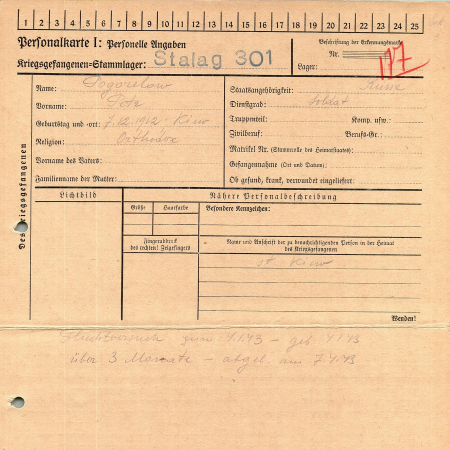 1 2 3 4 5 6 7 8 9 10 11 12 13 14 15 16 17 18 19 20 21 22 23 24 25
Personalkarte I: Personelle Angaben
Kriegsgefangenen-Stammlager: Stalag 301
Beschriftung der Erkennungsmarke
Nr. 177
Lager:
Des Kriegsgefangenen
Name: Pogorelow
Vorname:
Geburtstag und -ort: 7.12.1912 Kiew
Religion: Orthodox
Vorname des Vaters:
Familienname der Mutter:
Staatsangehörigkeit: Russe
Dienstgrad: Soldat
Truppenteil: Komp. usw.:
Zivilberuf: Berufs-Gr.:
Matrikel Nr. (Stammrolle des Heimatstaates):
Gefangennahme (Ort und Datum):
Ob gesund, krank, verwundet eingeliefert:
Lichtbild
Nähere Personalbeschreibung
Größe
Haarfarbe
Besondere Kennzeichen:
Fingerabdruck
des rechten! Zeigefingers
Name und Anschrift der zu benachrichtigenden Person in der Heimat
des Kriegsgefangenen
st. Kiew
Wenden!
Fluchtversuch zum 4.1.43 –
über 3 Monate – abgel. am 7.4.43